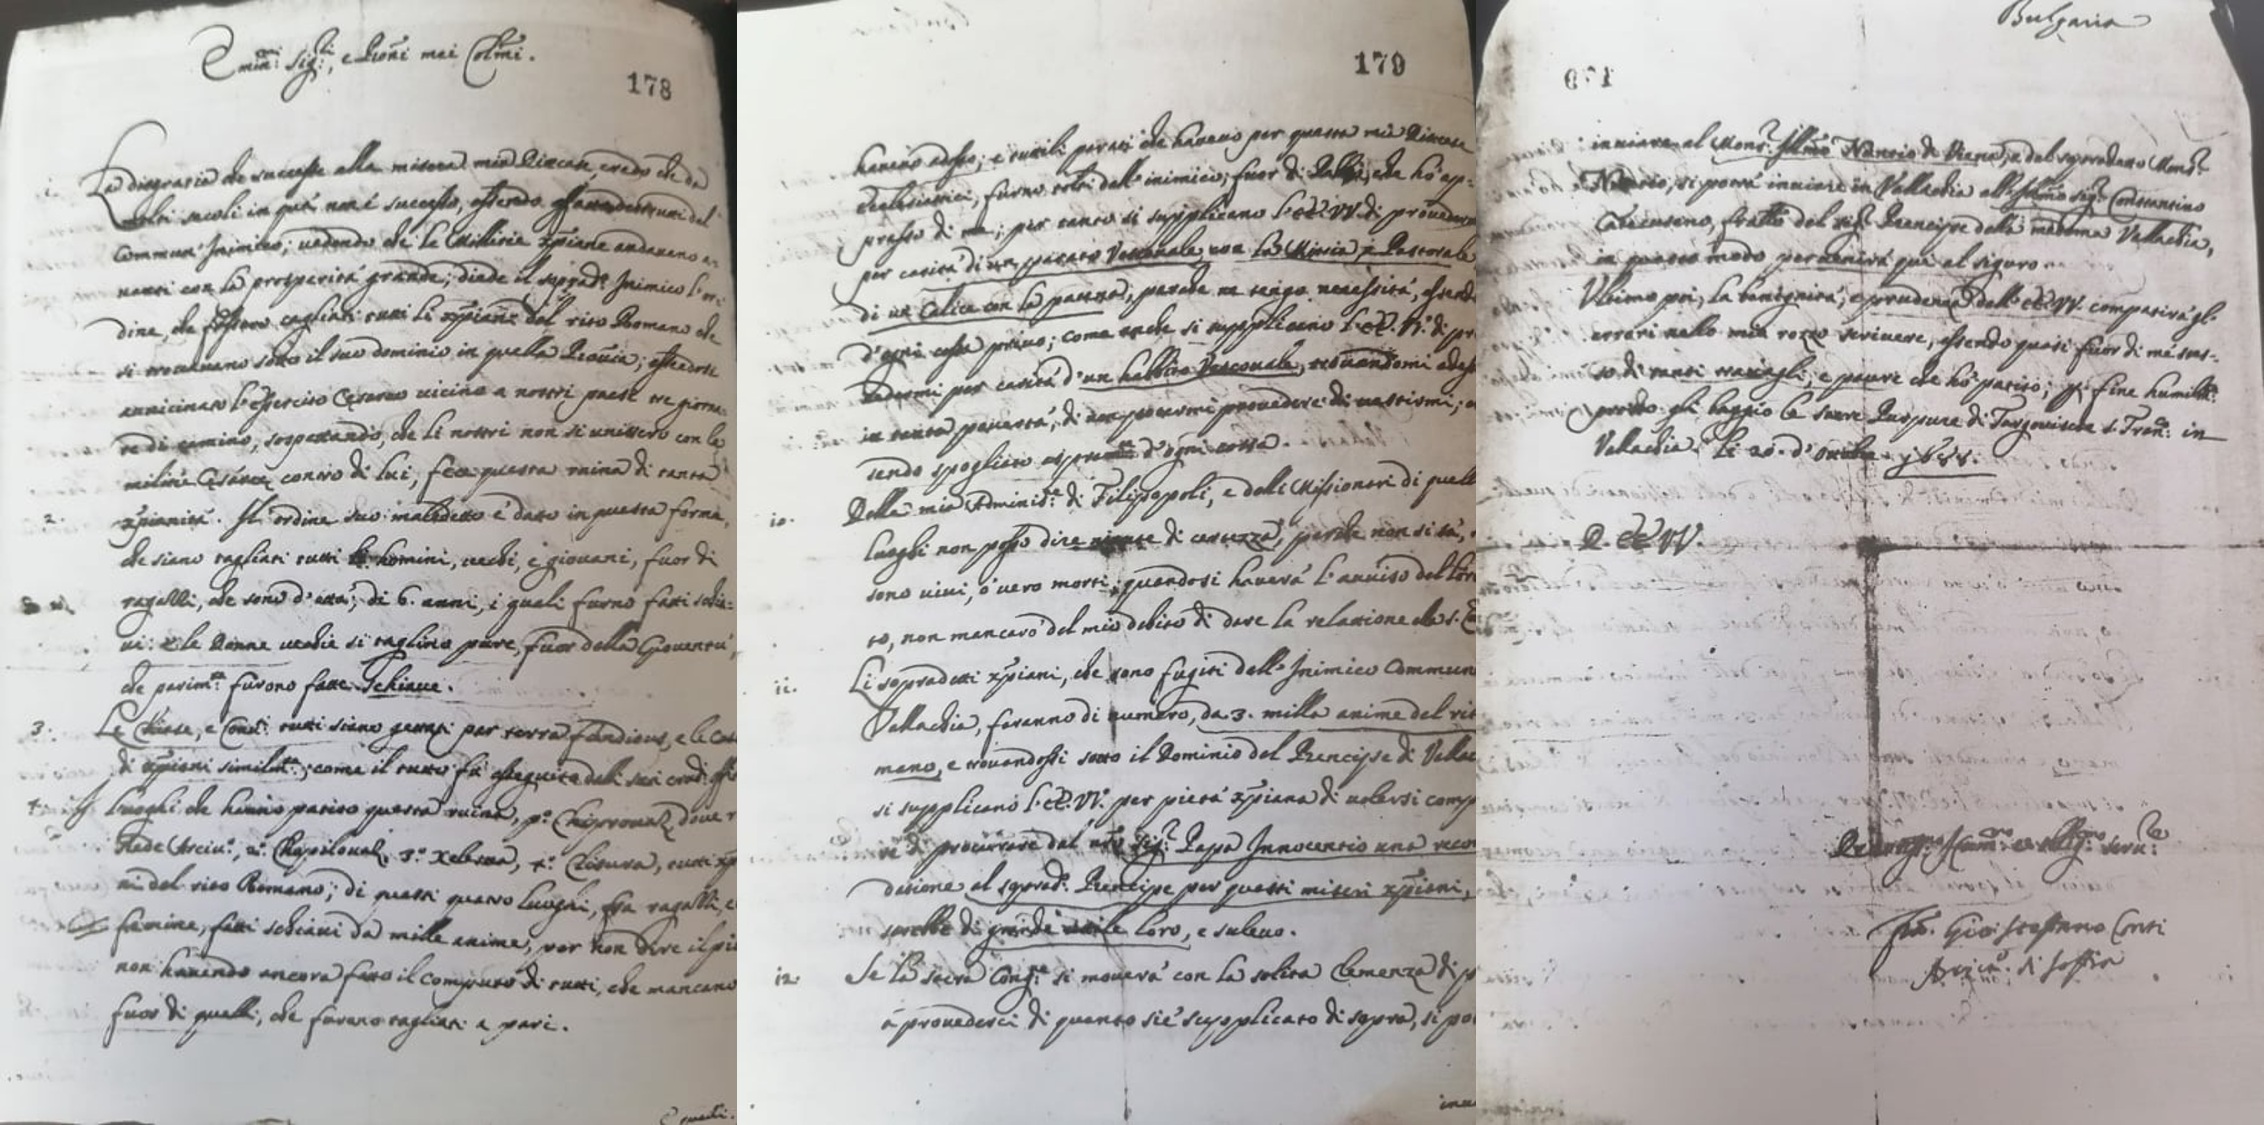 Emin:mi Sig:ri, e Proni mei Colmi.
178
1. La disgratia che successe alla misera mia Diocese, credo che da
molti secoli in quà non è successo, essendo destrutti del
Commun' Inimico; vedendo che le Militie xpiane andavano a-
vanti con la prosperità grande; diede il soprad:o Inimico l'or-
dine, che fossero tagliati tutti li xpiani del rito Romano che
si trovavano sotto il suo dominio in quella Provia; essedosi
avvicinato l'essercito Cesareo vicino a nostri paesi tre giorna-
te di camino, sospettando, che li nostri non si unissero con le
militie Cesaree contro di lui, fece questa ruina di tanta
2. xpianità. Il ordine suo maledetto è datto in questa forma,
che siano tagliati tutti li homini, vechi, e giovani, fuor di
ragassi, che sono d'età, di 6. anni, i quali furno fatti schia-
vi: e le Donne vechie si taglino pure, fuor della Gioventù,
che parim:te furono fatte schiave.
3. Le Chiese, e Conv:ti tutti siano gettati per terra fundicus, e le Case
di xpiani similm:te; come il tutto fù esseguito dalli suoi crudi
4. Luoghi che hanno patito questa ruina, p:o Chiprovaz, dove
Sede Arciv:le, 2:o Chopiloval, 3:o Xelesna, 4:o Clisura, tutti xpia
ni del rito Romano; di questi quatro Luoghi, fra ragassi, e
femine, fatti schiavi da mille anime, per non dire il più
non havendo ancora fatto il computo di tutti, che mancano
fuor di quelli, che furono tagliati a pari.
E questi.
179
havevo adosso; e tutti li parati che havevo per questa mia Diocese
Ecclesiastici, furno tolti dall'inimico; fuor di Pallio, che hò ap-
presso di me; per tanto si supplicano l'EE. VV. di provedermi
per carità di un parato Vescovale con la Mitria e Pastorale
di un Calice con la patena, perche ne tengo necessità, essendo
d'ogni cossa privo; come anche si supplicano l'EE. VV. di pro
vedermi per carità d'un habbito Vescovale, trovandomi adesso
in tanta povertà, di non potermi provedere di vestirmi;
sendo spogliato d'ogni cossa.
10. Della mia Administ:e di Filippopoli, e delli Missionari di quelli
Luoghi non posso dire niente di certezza, perche non si sà,
sono vivi, ò vero morti; quando si haverà l'avviso del loro
to, non mancarò del mio debito di dare la relatione alla S. C
11. Li sopradetti xpiani, che sono fugiti dall'Inimico Commun
Vallachia, saranno di numero, da 3. milla anime del rit
mano, e trovandossi sotto il Dominio del Prencipe di Vallac
si supplicano l'EE. VV. per pietà xpiana di volersi comp
re di procurare dal nro Sig:r Papa Innocentio una recom
datione al soprad:o Prencipe per questi miseri xpiani,
sarebbe di grande utile loro, e sulevo.
12. Se la sacra Cong:e si moverà con la solita Clemenza di p
à provederci di quanto si è supplicato di sopra, si po
invi
Bulgaria
179
inviare al Mons:r Illmo Nuntio di Viena, e dal sopradetto Mons:r
Nuntio, si potrà inviare in Vallachia all'Illmo Sig:r Constantino
Cantacuseno, fratello del Sig:r Prencipe della medema Vallachia,
in questo modo pervenirà qui al siguro.
Ultimo poi, la benignità, e prudenza dell'EE. VV. compatirà gl'
errori nello mio rozzo scrivere, essendo quasi fuor di me stes-
so di tanti travagli, e paure che hò patito; p. fine humilte
prostrato gli baggio le sacre Purpure di Targoviscte s. Fran:co in
Vallachia li 20. d' 1688.
D. EE VV.
Humil:mo et Oblig:mo Serv:re
Fra. Gio: Steffano Conti
Arciv:o di Soffia